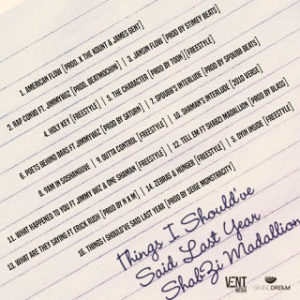 1. AMERICAN FLOW [PROD. K THE KOUNT & JAMES GENT]
2. RAP CONVO FT. JIMMYWIZ [PROD. BEATMOCHINI] | 3. JAHUN FLOW [PROD BY STIMEY BEATS]
4. HOLY KEY [FREESTYLE] | 5. THE CHARACTER [PROD BY TOOM] [FREESTYLE]
6. POETS BEHIND BARS FT. JIMMYWIZ [PROD BY SATURN] | 7. SPOUDI'S INTERLUDE [PROD BY SPOUDII BEATS]
8. 9AM IN SOSHANGUVE | 9. OUTTA CONTROL [FREESTYLE] | 10. SHAMAN'S INTERLUDE [2010 VERSE]
11. WHAT HAPPENED TO YOU FT JIMMY WIZ & ONE SHAMAN [FREESTYLE] | 12. TELL EM FT SHABZI MADALLION [PROD BY BLAQ]
13. WHAT ARE THEY SAYING FT ERICK RUSH [PROD BY H N M] | 14. ZEBRAS & HUNGER [FREESTYLE] | 15. DYIN INSIDE [FREESTYLE]
16. THINGS I SHOULD'VE SAID LAST YEAR [PROD BY SERGE MONSTRACITY]
Things I Should've
Said Last Year
ShabZi Madallion
VENT
MEDIA
DREAM